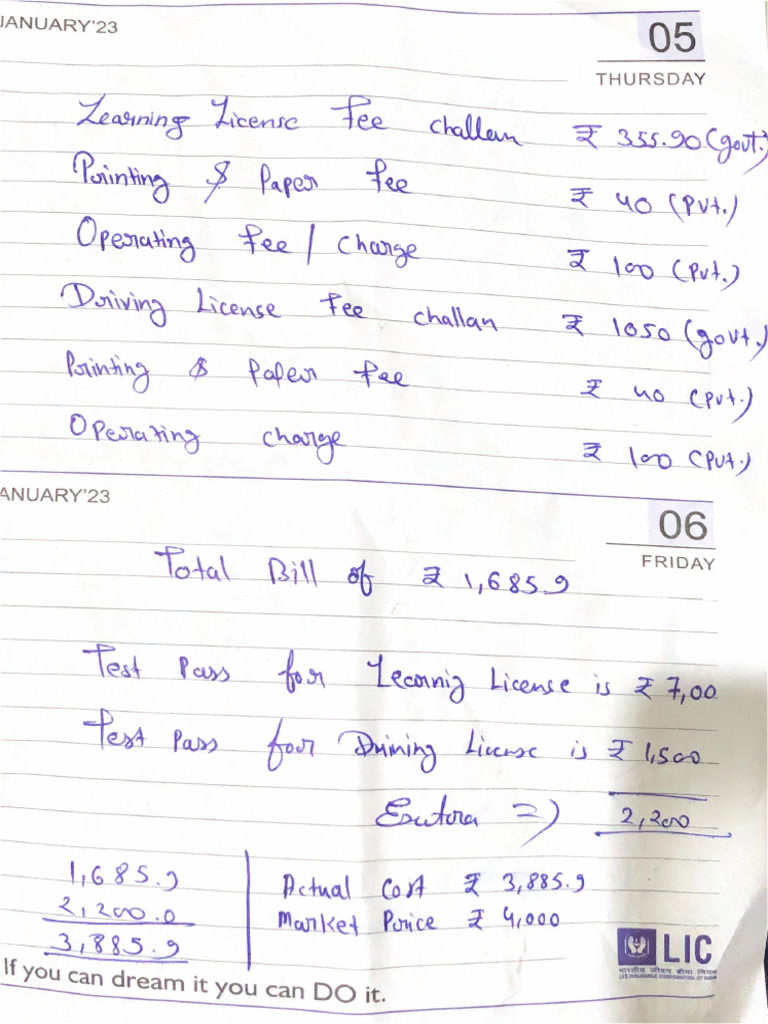 JANUARY'23
05
THURSDAY
Learning License Fee challan ₹ 355.90 (govt.)
Printing & Paper Fee ₹ 40 (Pvt.)
Operating Fee / Charge ₹ 100 (Pvt.)
Driving License Fee challan ₹ 1050 (govt.)
Printing & Paper Fee ₹ 40 (Pvt.)
Operating charge ₹ 100 (Pvt.)
ANUARY'23
06
FRIDAY
Total Bill of ₹ 1,685.9
Test Pass for Learnig License is ₹ 7,00
Test Pass for Drining License is ₹ 1,500
Exutora => 2,200
1,685.9
2,200.0
3,885.9
Actual Cost ₹ 3,885.9
Market Price ₹ 4,000
LIC
भारतीय जीवन बीमा निगम
LIFE INSURANCE CORPORATION OF INDIA
If you can dream it you can DO it.